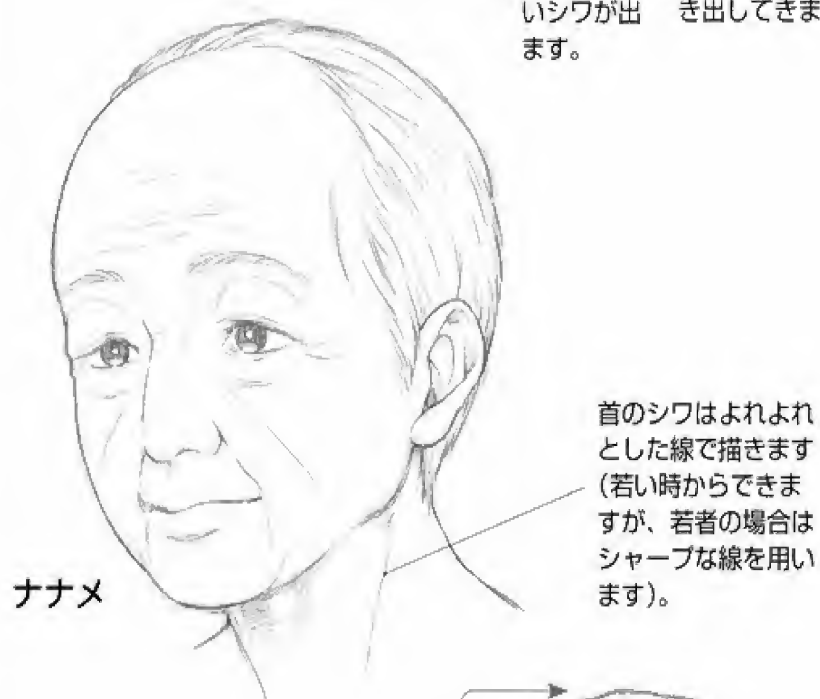 いシワが出
ます。
き出してきま
首のシワはよれよれ
とした線で描きます
(若い時からできま
すが、若者の場合は
シャープな線を用い
ます)。
ナナメ